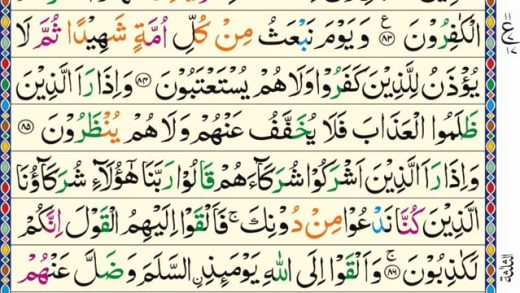 الْكٰفِرُوْنَ ﴿۸۳﴾ ع وَيَوْمَ نَبْعَثُ مِنْ كُلِّ اُمَّةٍ شَهِيْدًا ثُمَّ لَا
يُؤْذَنُ لِلَّذِيْنَ كَفَرُوْا وَلَا هُمْ يُسْتَعْتَبُوْنَ ﴿۸۴﴾ وَاِذَا رَاَ الَّذِيْنَ
ظَلَمُوا الْعَذَابَ فَلَا يُخَفَّفُ عَنْهُمْ وَلَا هُمْ يُنْظَرُوْنَ ﴿۸۵﴾
وَاِذَا رَاَ الَّذِيْنَ اَشْرَكُوْا شُرَكَآءَهُمْ قَالُوْا رَبَّنَا هٰٓؤُلَآءِ شُرَكَآؤُنَا
الَّذِيْنَ كُنَّا نَدْعُوْا مِنْ دُوْنِكَ ۚ فَاَلْقَوْا اِلَيْهِمُ الْقَوْلَ اِنَّكُمْ
لَكٰذِبُوْنَ ﴿۸۶﴾ ۚ وَاَلْقَوْا اِلَى اللّٰهِ يَوْمَئِذِ ۨالسَّلَمَ وَضَلَّ عَنْهُمْ